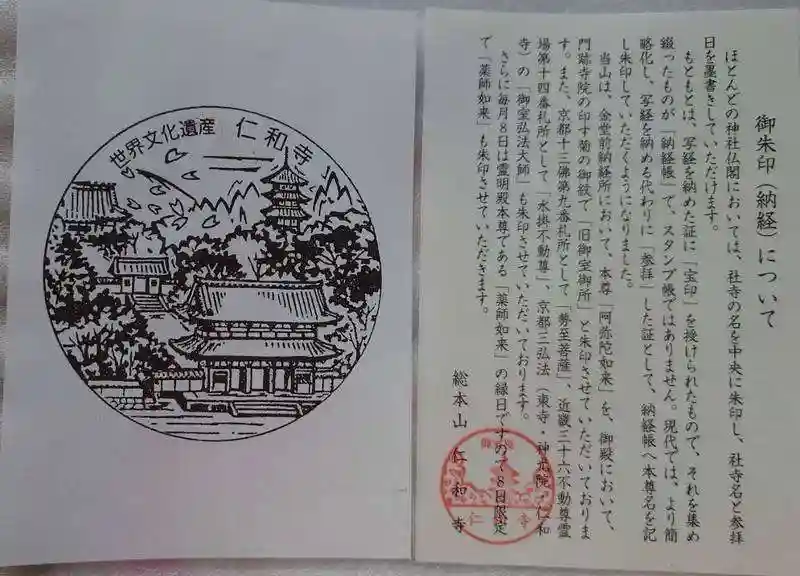 世界文化遺産 仁和寺
御朱印（納経）について
ほとんどの神社仏閣においては、社寺の名を中央に朱印し、社寺名と参拝
日を墨書きしていただけます。
もともとは、写経を納めた証に「宝印」を授けられたもので、それを集め
綴ったものが「納経帳」で、スタンプ帳ではありません。現代では、より簡
略化し、写経を納める代わりに「参拝」した証として、納経帳へ本尊名を記
し朱印していただくようになりました。
当山は、金堂前納経所において、本尊「阿弥陀如来」を、御殿において、
門跡寺院の印す菊の御紋で「旧御室御所」と朱印させていただいておりま
す。また、京都十三佛第九番札所として「勢至菩薩」、近畿三十六不動尊霊
場第十四番札所として「水掛不動尊」、京都三弘法（東寺・神光院・仁和
寺）の「御室弘法大師」も朱印させていただいております。
さらに毎月8日は霊明殿本尊である「薬師如来」の縁日ですので8日限定
で「薬師如来」も朱印させていただきます。
総本山 仁和寺
仁 寺